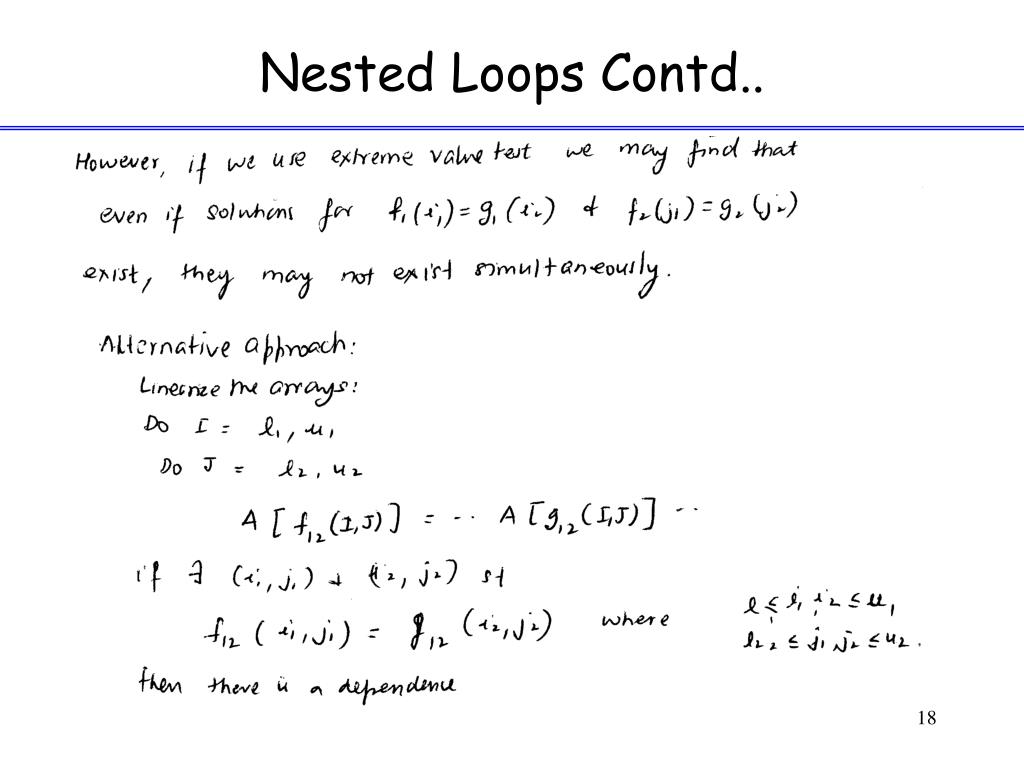 Nested Loops Contd..
However, if we use extreme value test we may find that
even if solutions for f₁(i₁) = g₁(i₂) & f₂(j₁) = g₂(j₂)
exist, they may not exist simultaneously.
Alternative approach:
Linearize the arrays:
Do I = l₁, u₁
Do J = l₂, u₂
A [f₁₂(I,J)] = ... A [g₁₂(I,J)] ...
if ∃ (i₁, j₁) & (i₂, j₂) st
f₁₂ (i₁, j₁) = g₁₂ (i₂, j₂) where l₁ ≤ i₁, i₂ ≤ u₁
l₂ ≤ j₁, j₂ ≤ u₂.
then there is a dependence
18